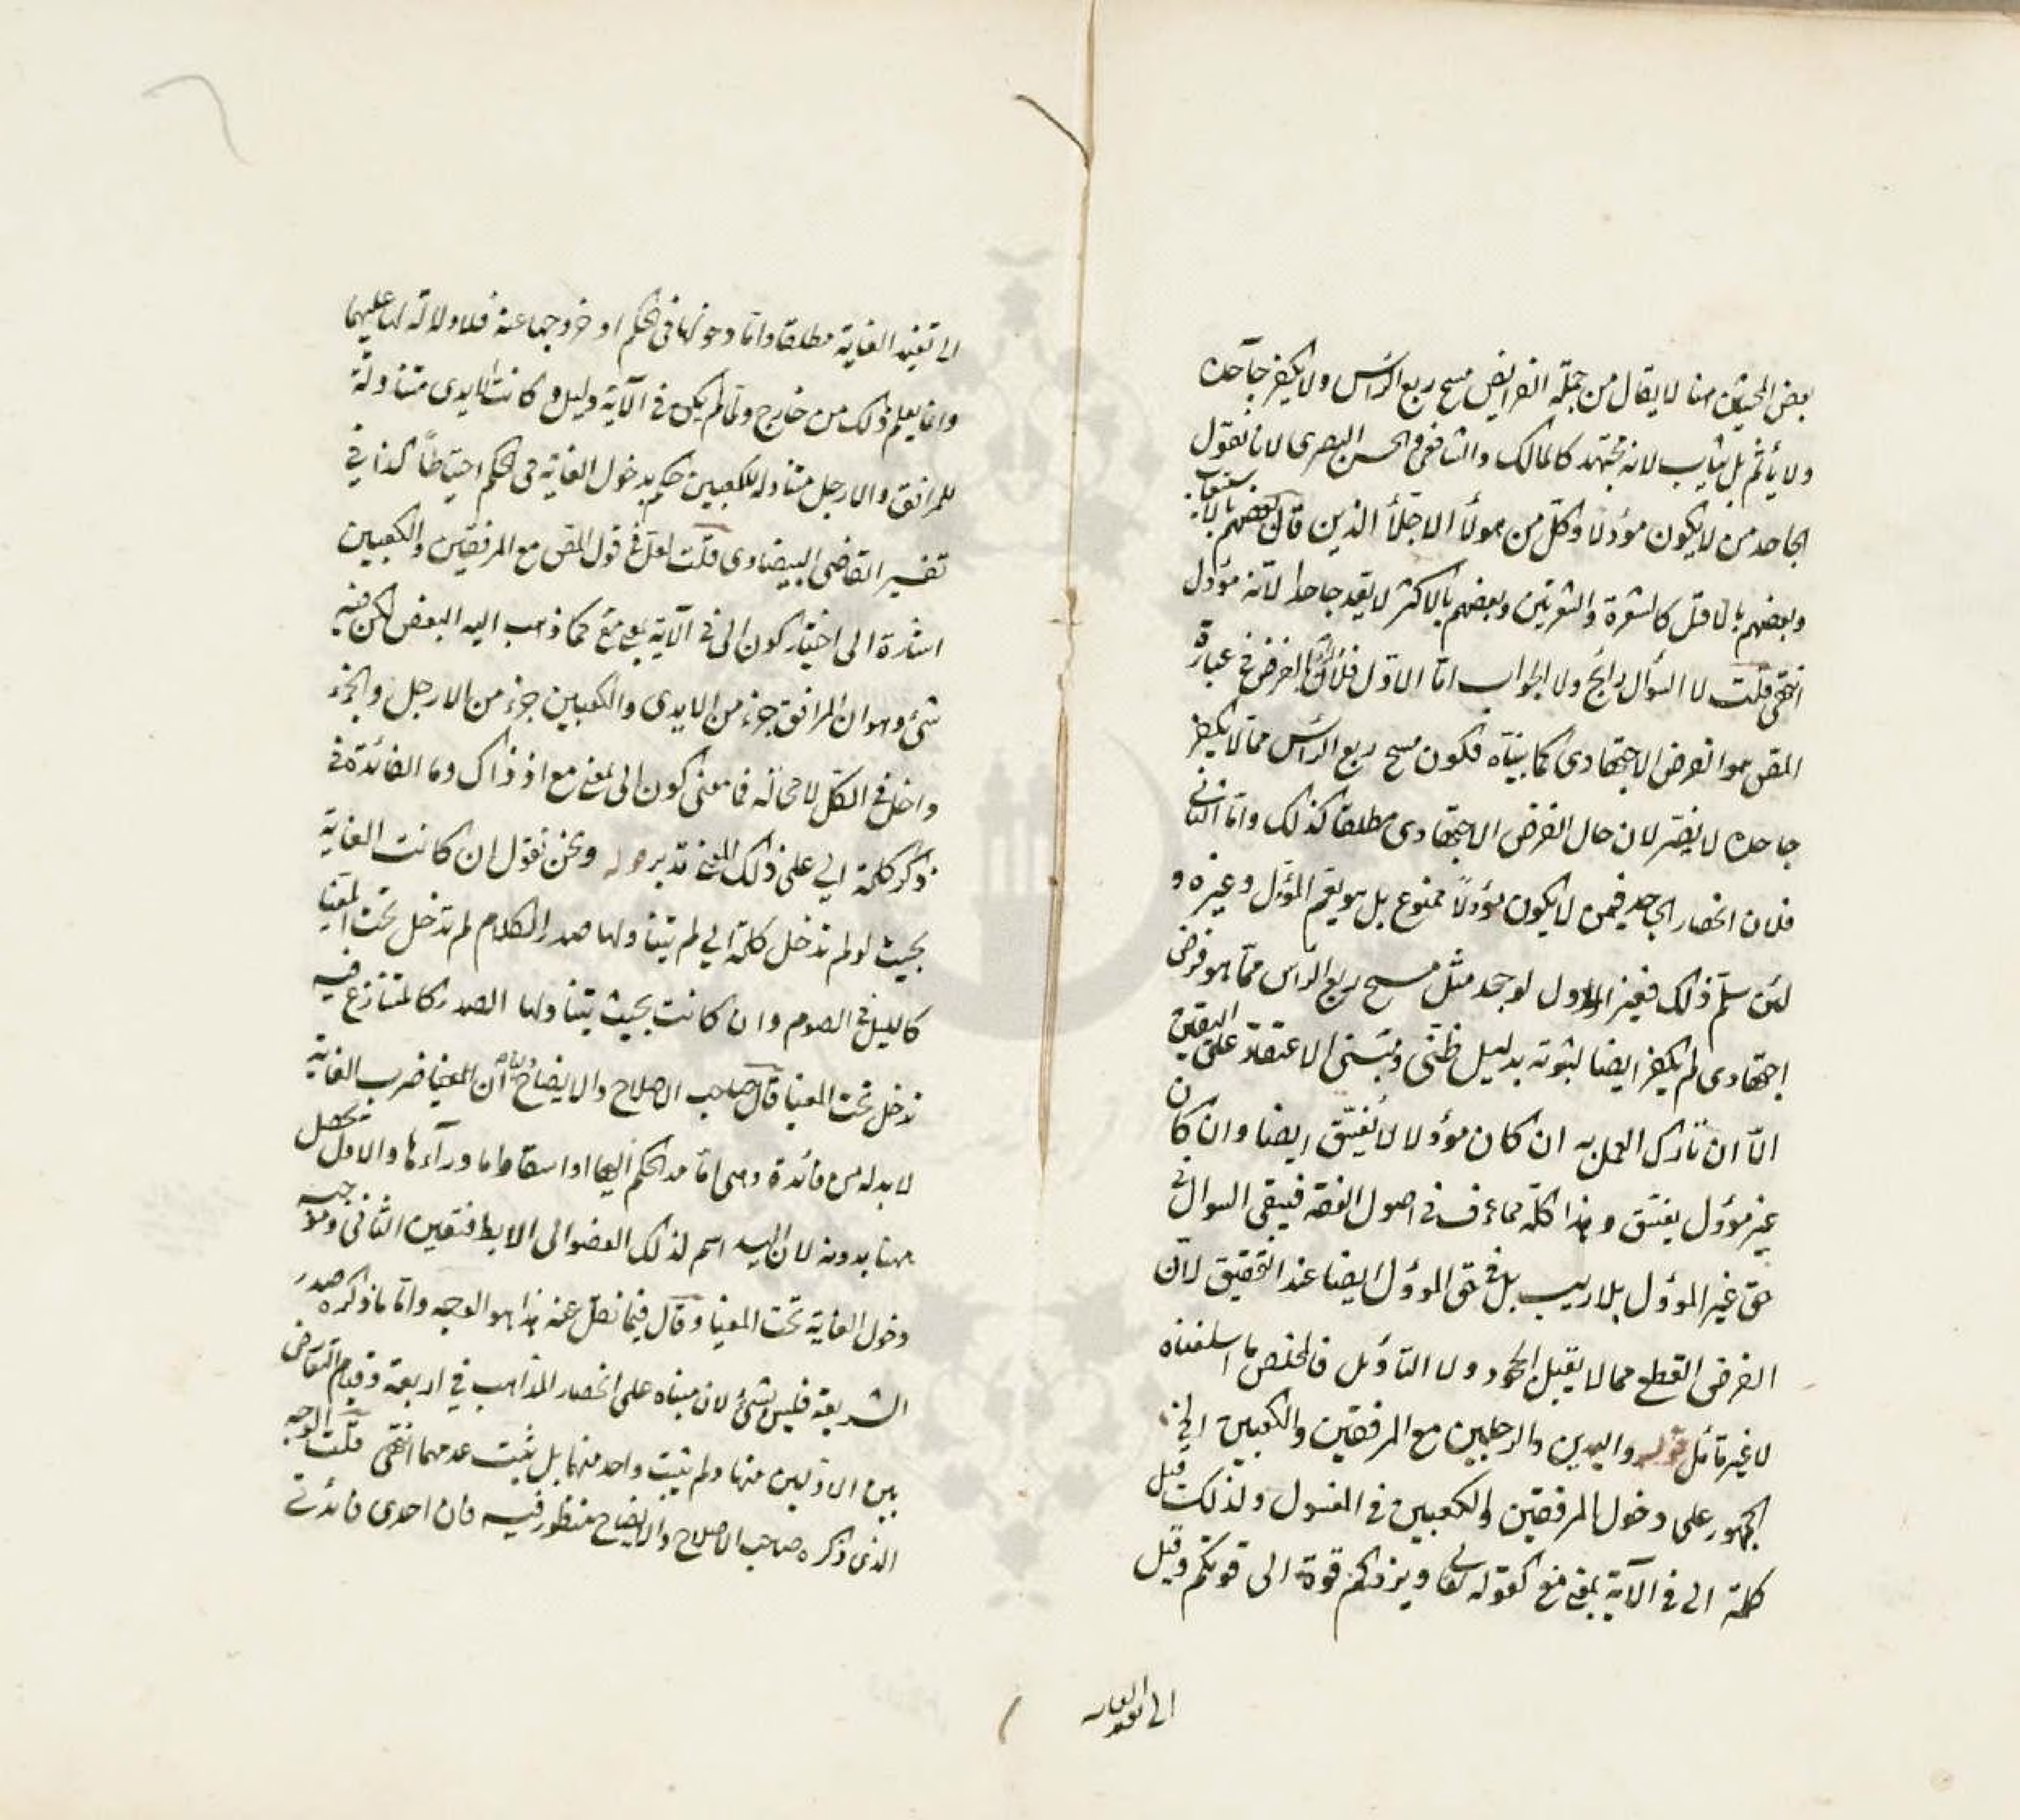 بعض المحشين هنا لا يقال من جملة الفرايض مسح ربع الرأس ولا يكفر جاحده
ولا يأثم بل يثاب لانه مجتهد كالمالك والشافعي والحسن البصري لانا نقول
الجاحد من لا يكون مؤولا وكل من هولاء الاجلاء الذين قال بعضهم بالاستيعاب
وبعضهم بالاقل كالشعرة والشعرتين وبعضهم بالاكثر لا يعد جاحدا لانه مؤول
انتهى قلت لا السؤال رائج ولا الجواب اما الاول فلان الفرض في عبارة
المص هو الفرض الاجتهادي كما بيناه فكون مسح ربع الرأس مما لا يكفر
جاحده لا يضر لان حال الفرض الاجتهادي مطلقا كذلك واما الثاني
فلان انحصار الجاحد فيمن لا يكون مؤولا ممنوع بل هو يعم المؤول وغيره و
لئن سلم ذلك فغير المؤول لو جحد مثل مسح ربع الرأس مما هو فرض
اجتهادي لم يكفر ايضا لثبوته بدليل ظني ومبنى الاعتقاد على اليقين
الا ان تارك العمل به ان كان مؤولا لا يفسق ايضا وان كان
غير مؤول يفسق وهذا كله مما عرف في اصول الفقه فيبقى السوال في
حق غير المؤول بلا ريب بل في حق المؤول ايضا عند التحقيق لان
الفرض القطع مما لا يقبل الجحود ولا التأويل فالمخلص ما اسلفناه
لا غير تأمل قوله واليدين والرجلين مع المرفقين والكعبين
الجمهور على دخول المرفقين والكعبين في المغسول ولذلك قيل
كلمة الى في الآية بمعنى مع كقوله تعالى ويزدكم قوة الى قوتكم وقيل
الى تفيد الغاية
الى تفيد الغاية مطلقا واما دخولها في الحكم او خروجها عنه فلا دلالة لها عليهما
وانما يعلم ذلك من خارج ولما لم يكن في الآية دليل وكانت الايدي متناولة
للمرافق والارجل متناولة للكعبين حكم بدخول الغاية في الحكم احتياطا كذا في
تفسير القاضي البيضاوي قلت لعل في قول المص مع المرفقين والكعبين
اشارة الى اختيار كون الى في الآية بمعنى مع كما ذهب اليه البعض لكن فيه
شئ وهو ان المرافق جزء من الايدي والكعبين جزء من الارجل والجزء
داخل في الكل لا محالة فما معنى كون الى بمعنى مع اذ ذاك وما الفائدة في
ذكر كلمة الى على ذلك المعنى تدبر قوله ونحن نقول ان كانت الغاية
بحيث لو لم تدخل كلمة الى لم يتناولها صدر الكلام لم تدخل تحت المغيا
كالليل في الصوم وان كانت بحيث يتناولها الصدر كالمتنازع فيه
تدخل تحت المغيا قال صاحب الاصلاح والايضاح ان للمغيا ضرب الغاية
لا بد له من فائدة وهي اما مد الحكم اليها او اسقاط ما ورآءها والاول يحصل
هنا بدونه لان اليد اسم لذلك العضو الى الابط فتعين الثاني وموجبه
دخول الغاية تحت المغيا وقال فيما نقل عنه هذا هو الوجه واما ما ذكره صدر
الشريعة فليس بشئ لان مبناه على انحصار المذاهب في اربعة وقيام التعارض
بين الاولين منها ولم يثبت واحد منهما بل يثبت عدمهما انتهى قلت الوجه
الذي ذكره صاحب الاصلاح والايضاح منظور فيه فان احدى فائدتي